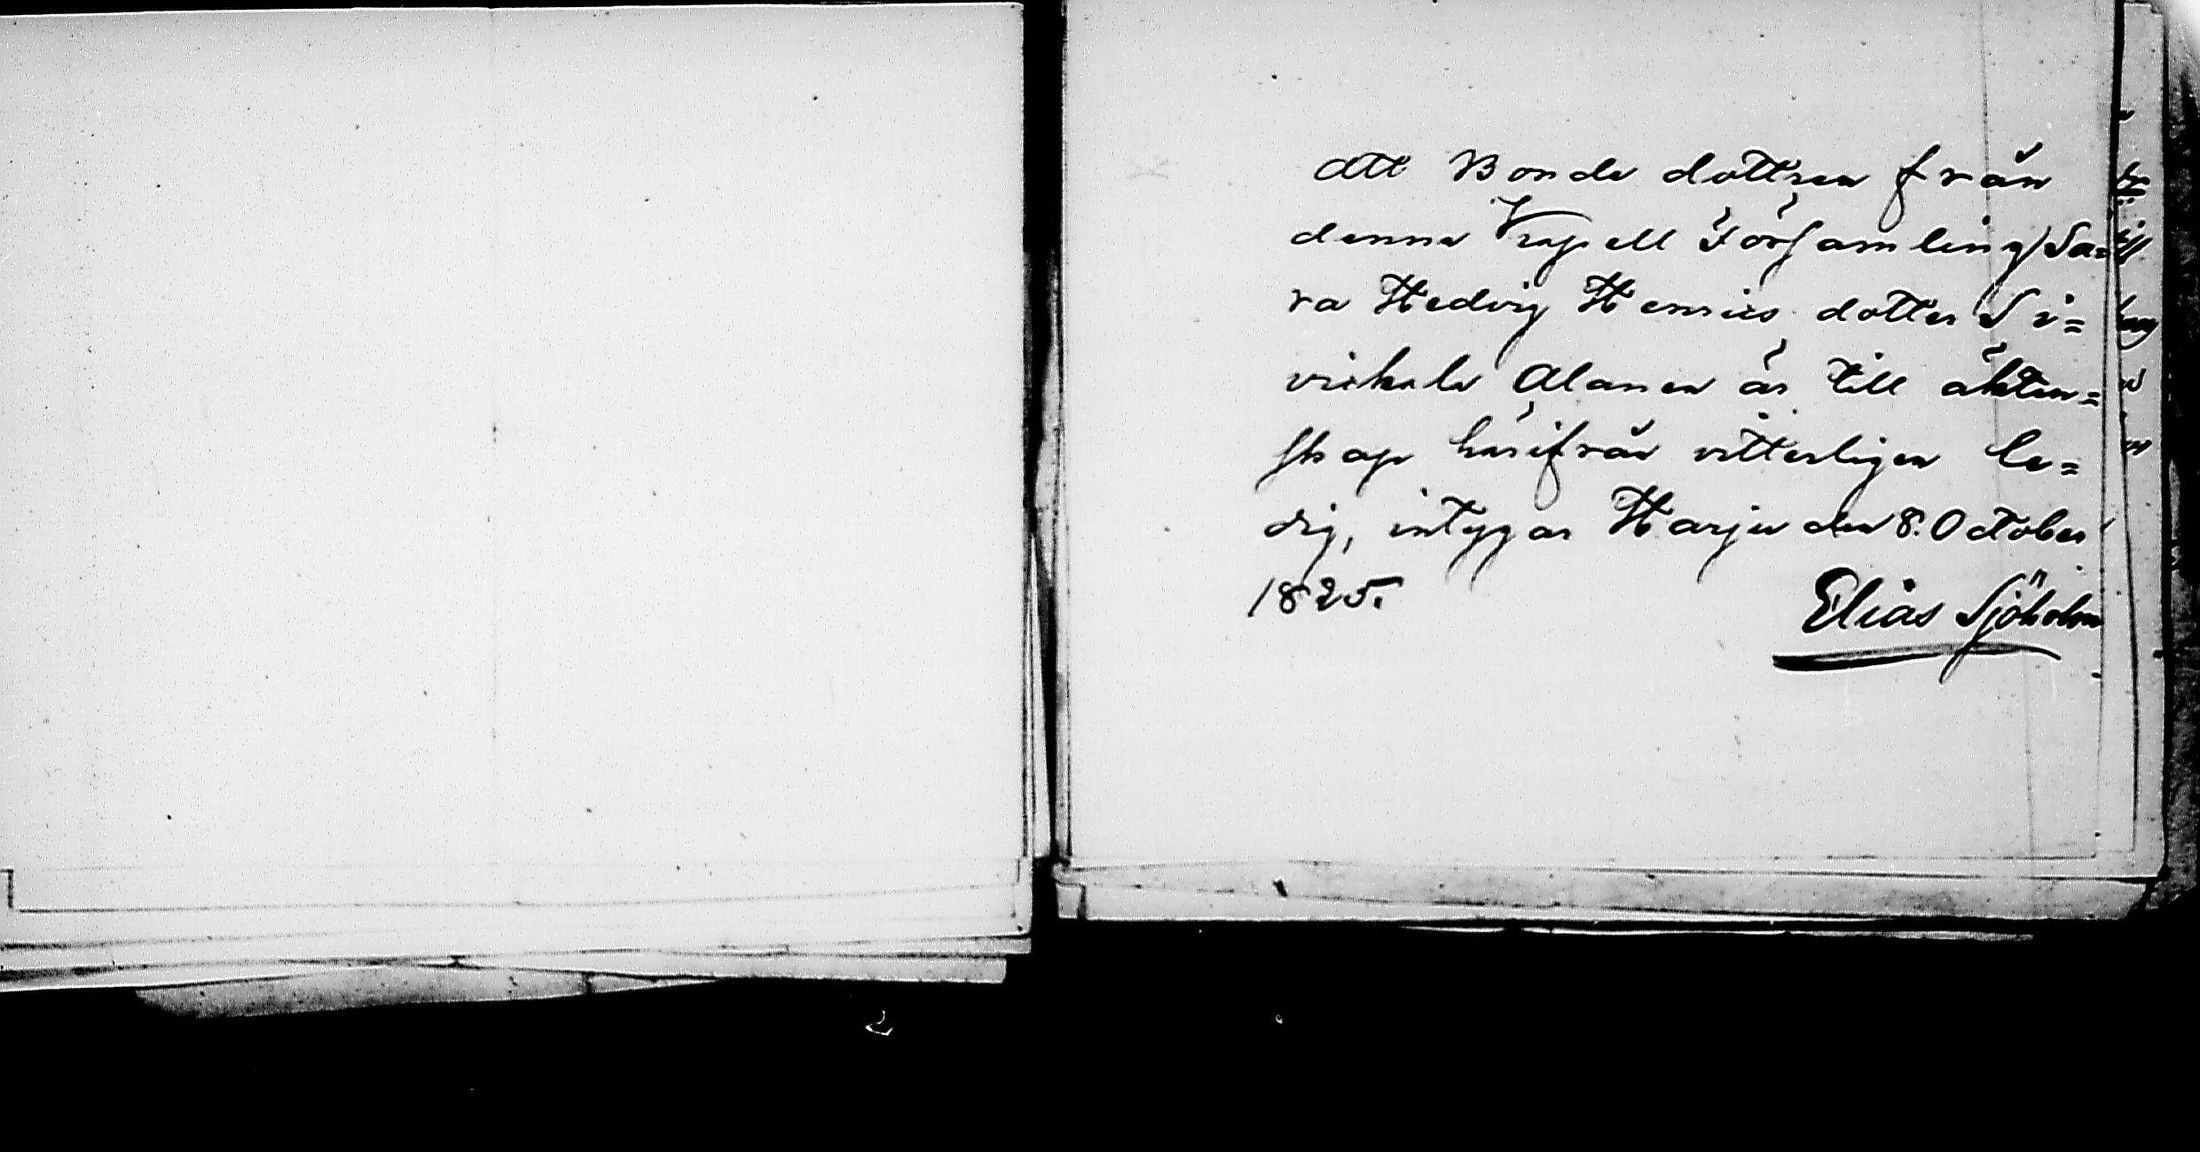 Att Bonde dottren från
denna Kapell Församling Sa=
ra Hedvig Henrics dotter Si=
virkala Alanen är till äkten=
skap härifrån vitterligen le=
dig, intygar Harju den 8. October
1825.
Elias Sjöholm
2